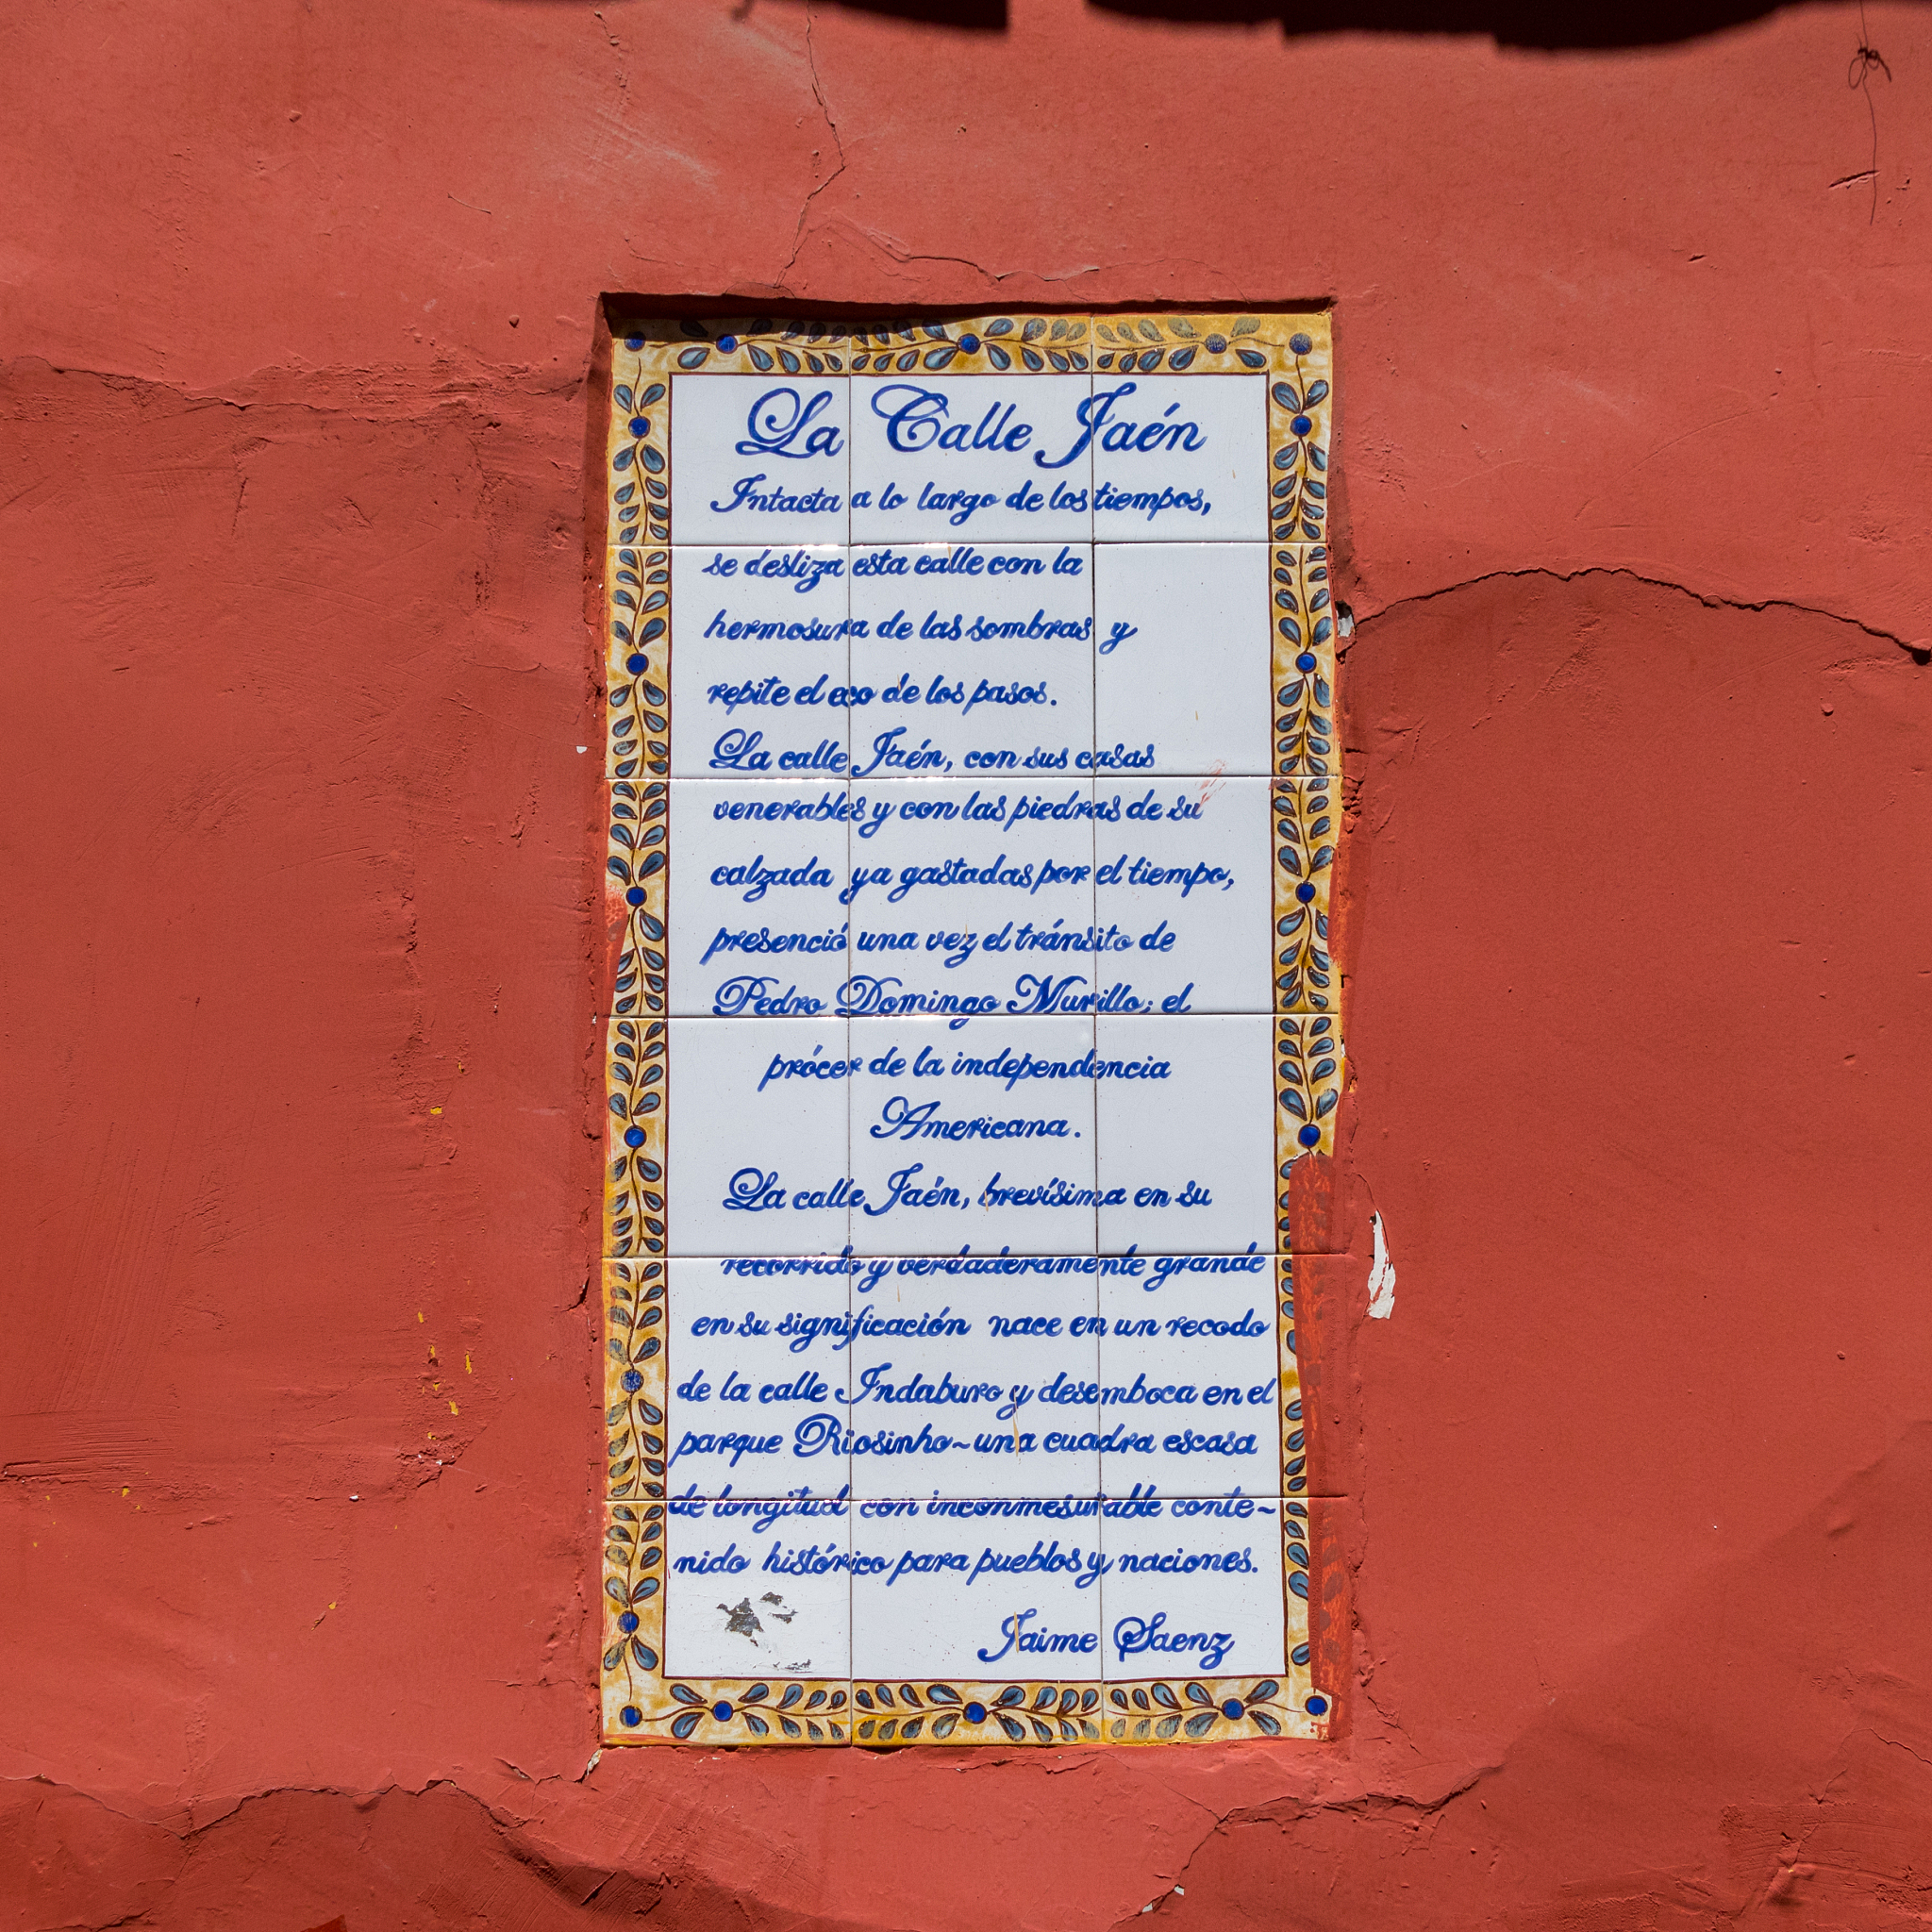 La Calle Jaén
Intacta a lo largo de los tiempos,
se desliza esta calle con la
hermosura de las sombras y
repite el eco de los pasos.
La calle Jaén, con sus casas
venerables y con las piedras de su
calzada ya gastadas por el tiempo,
presenció una vez el tránsito de
Pedro Domingo Murillo; el
prócer de la independencia
Americana.
La calle Jaén, brevísima en su
recorrido y verdaderamente grande
en su significación nace en un recodo
de la calle Indaburo y desemboca en el
parque Riosinho~una cuadra escasa
de longitud con inconmesurable conte~
nido histórico para pueblos y naciones.
Jaime Saenz